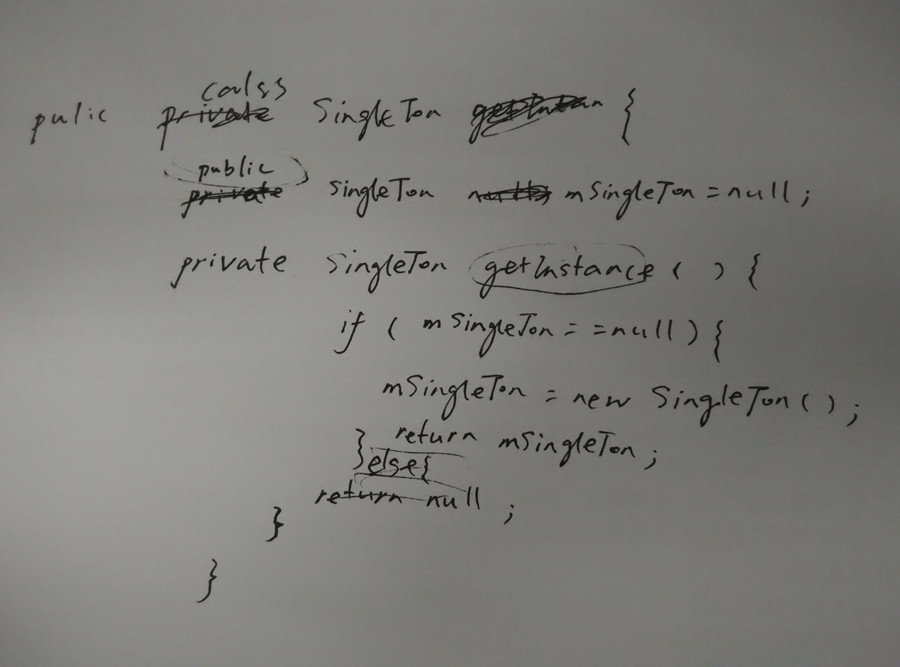 pulic calss SingleTon {
public SingleTon mSingleTon = null;
private SingleTon getInstance ( ) {
if ( mSingleTon == null ) {
mSingleTon = new SingleTon ( ) ;
return mSingleTon ;
} else {
return null ;
}
}